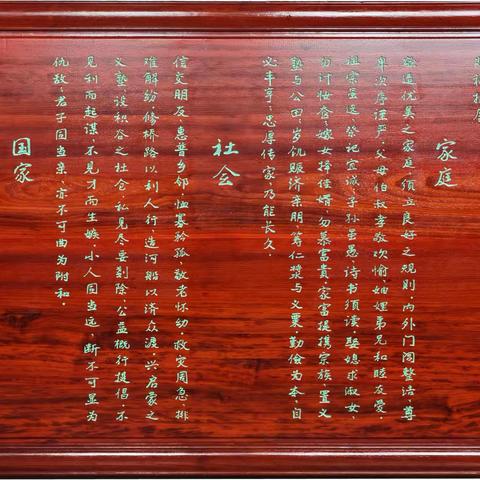 家庭
欲造优美之家庭,须立良好之规则,内外门闾整洁,尊
卑次序谨严,父母伯叔孝敬欢愉,妯娌弟兄和睦友爱,
祖宗虽远,祭祀宜诚,子孙虽愚,诗书须读,娶媳求淑女,
勿计妆奁,嫁女择佳婿,勿慕富贵,家富提携宗族,置义
塾与公田,岁饥赈济亲朋,筹仁浆与义粟,勤俭为本,自
必丰亨,忠厚传家,乃能长久。
社会
信交朋友,惠普乡邻,恤寡矜孤,敬老怀幼,救灾周急,排
难解纷,修桥路以利人行,造河船以济众渡,兴启蒙之
义塾,设积谷之社仓,私见尽要刬除,公益概行提倡,不
见利而起谋,不见才而生嫉,小人固当远,断不可显为
仇敌,君子固当亲,亦不可曲为附和。
国家